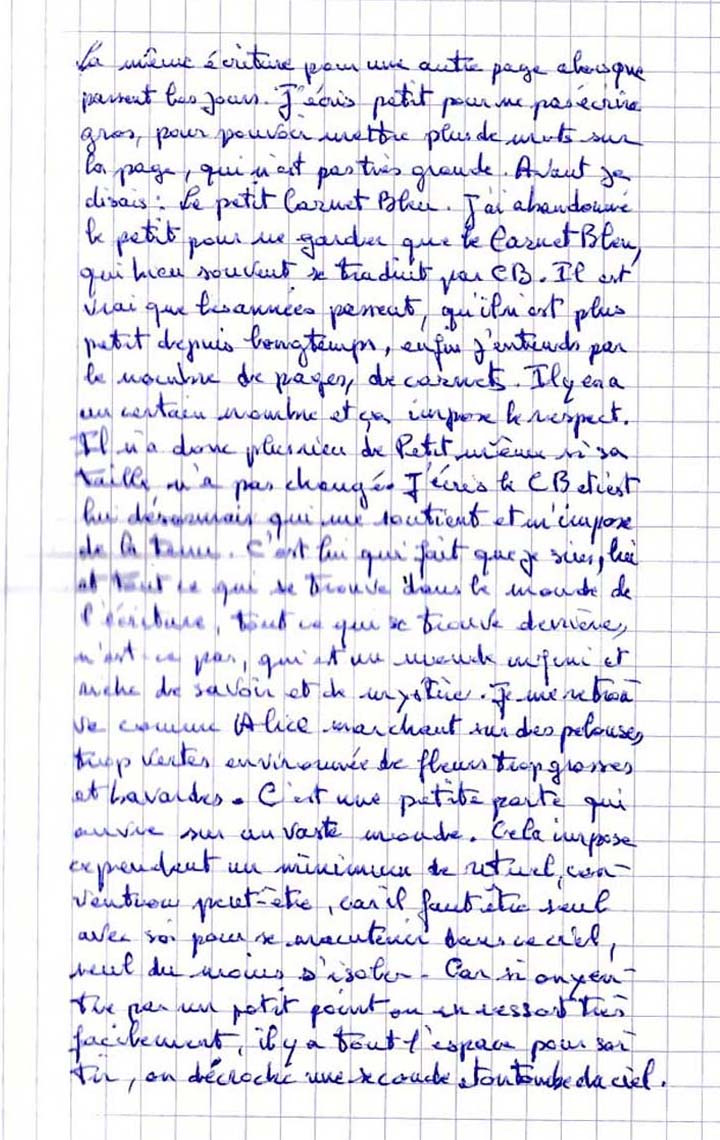 La même écriture pour une autre page alors que
passent les jours. J'écris petit pour ne pas écrire
gros, pour pouvoir mettre plus de mots sur
la page, qui n'est pas très grande. Avant je
disais : Le petit Carnet Bleu. J'ai abandonné
le petit pour ne garder que le Carnet Bleu,
qui bien souvent se traduit par CB. Il est
vrai que les années passent, qu'il n'est plus
petit depuis longtemps, enfin j'entends par
le nombre de pages, de carnets. Il y en a
un certain nombre et ça impose le respect.
Il n'a donc plus rien de Petit, même si sa
taille n'a pas changé. J'écris le CB et c'est
lui désormais qui me soutient et m'impose
de la tenue. C'est lui qui fait que je suis, lui
et tout ce qui se trouve dans le monde de
l'écriture, tout ce qui se trouve derrière,
n'est-ce pas, qui est un monde infini et
riche de savoir et de mystère. Je me retrou
ve comme Alice marchant sur des pelouses
trop vertes environnée de fleurs trop grosses
et bavardes. C'est une petite porte qui
ouvre sur un vaste monde. Cela impose
cependant un minimum de rituel, con-
vention peut-être, car il faut être seul
avec soi pour se maintenir dans ce ciel,
seul du moins s'isoler. Car si on y en-
tre par un petit point on en ressort très
facilement, il y a tout l'espace pour sor
tir, on décroche une seconde et on tombe du ciel.